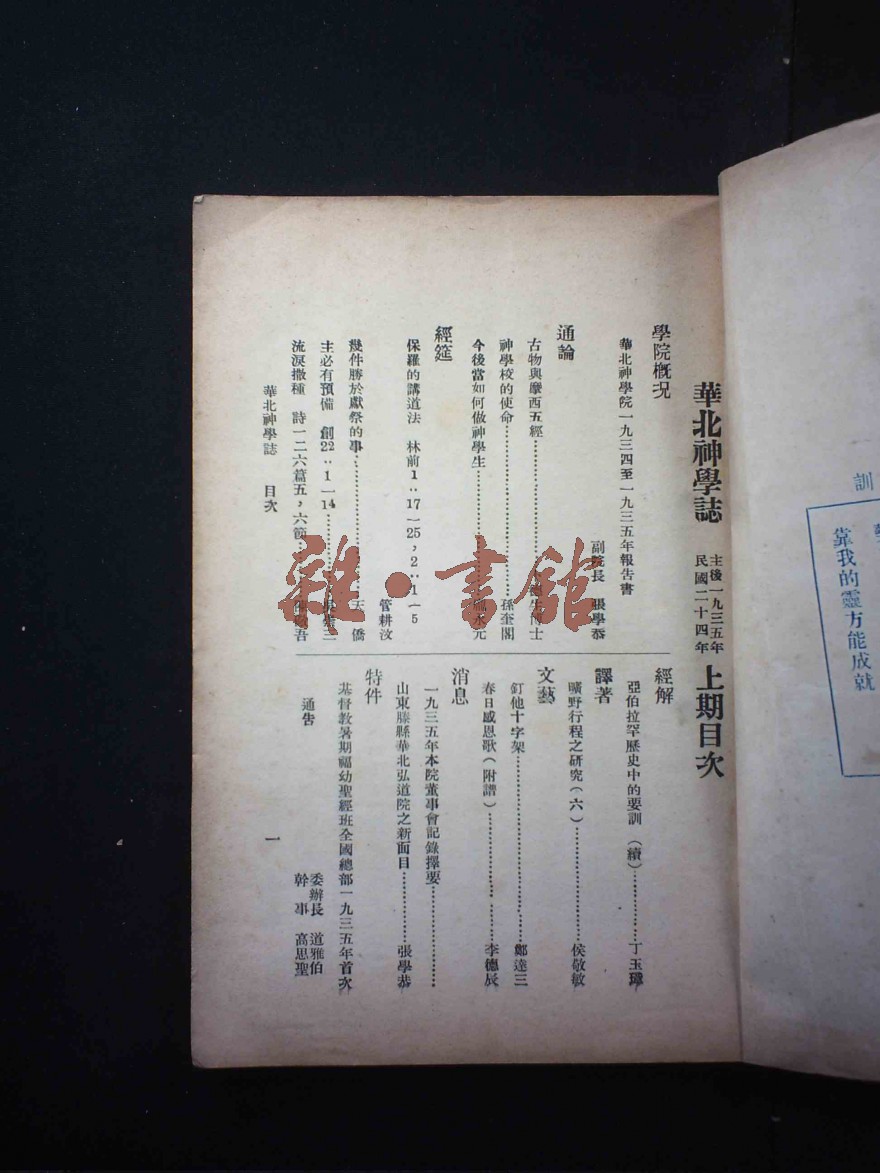 訓
靠我的靈方能成就
華北神學誌 主後一九三五年 民國二十四年 上期目次
學院概況
華北神學院一九三四至一九三五年報告書
副院長 張學恭
通論
古物與摩西五經 博士
神學校的使命 孫奎閣
今後當如何做神學生 永元
經筵
保羅的講道法 林前1:17—25,2:1—5
管耕汶
幾件勝於獻祭的事 天僑
主必有預備 創22:1—14 三
流淚撒種 詩一二六篇五,六節 吾
經解
亞伯拉罕歷史中的要訓(續) 丁玉璋
譯著
曠野行程之研究(六) 侯敬敏
文藝
釘他十字架 鄭達三
春日感恩歌(附譜) 李德辰
消息
一九三五年本院董事會記錄擇要
山東滕縣華北弘道院之新面目 張學恭
特件
基督教暑期福幼聖經班全國總部一九三五年首次
通告
委辦長 道雅伯
幹事 高思聖
華北神學誌 目次
一
雜·書館